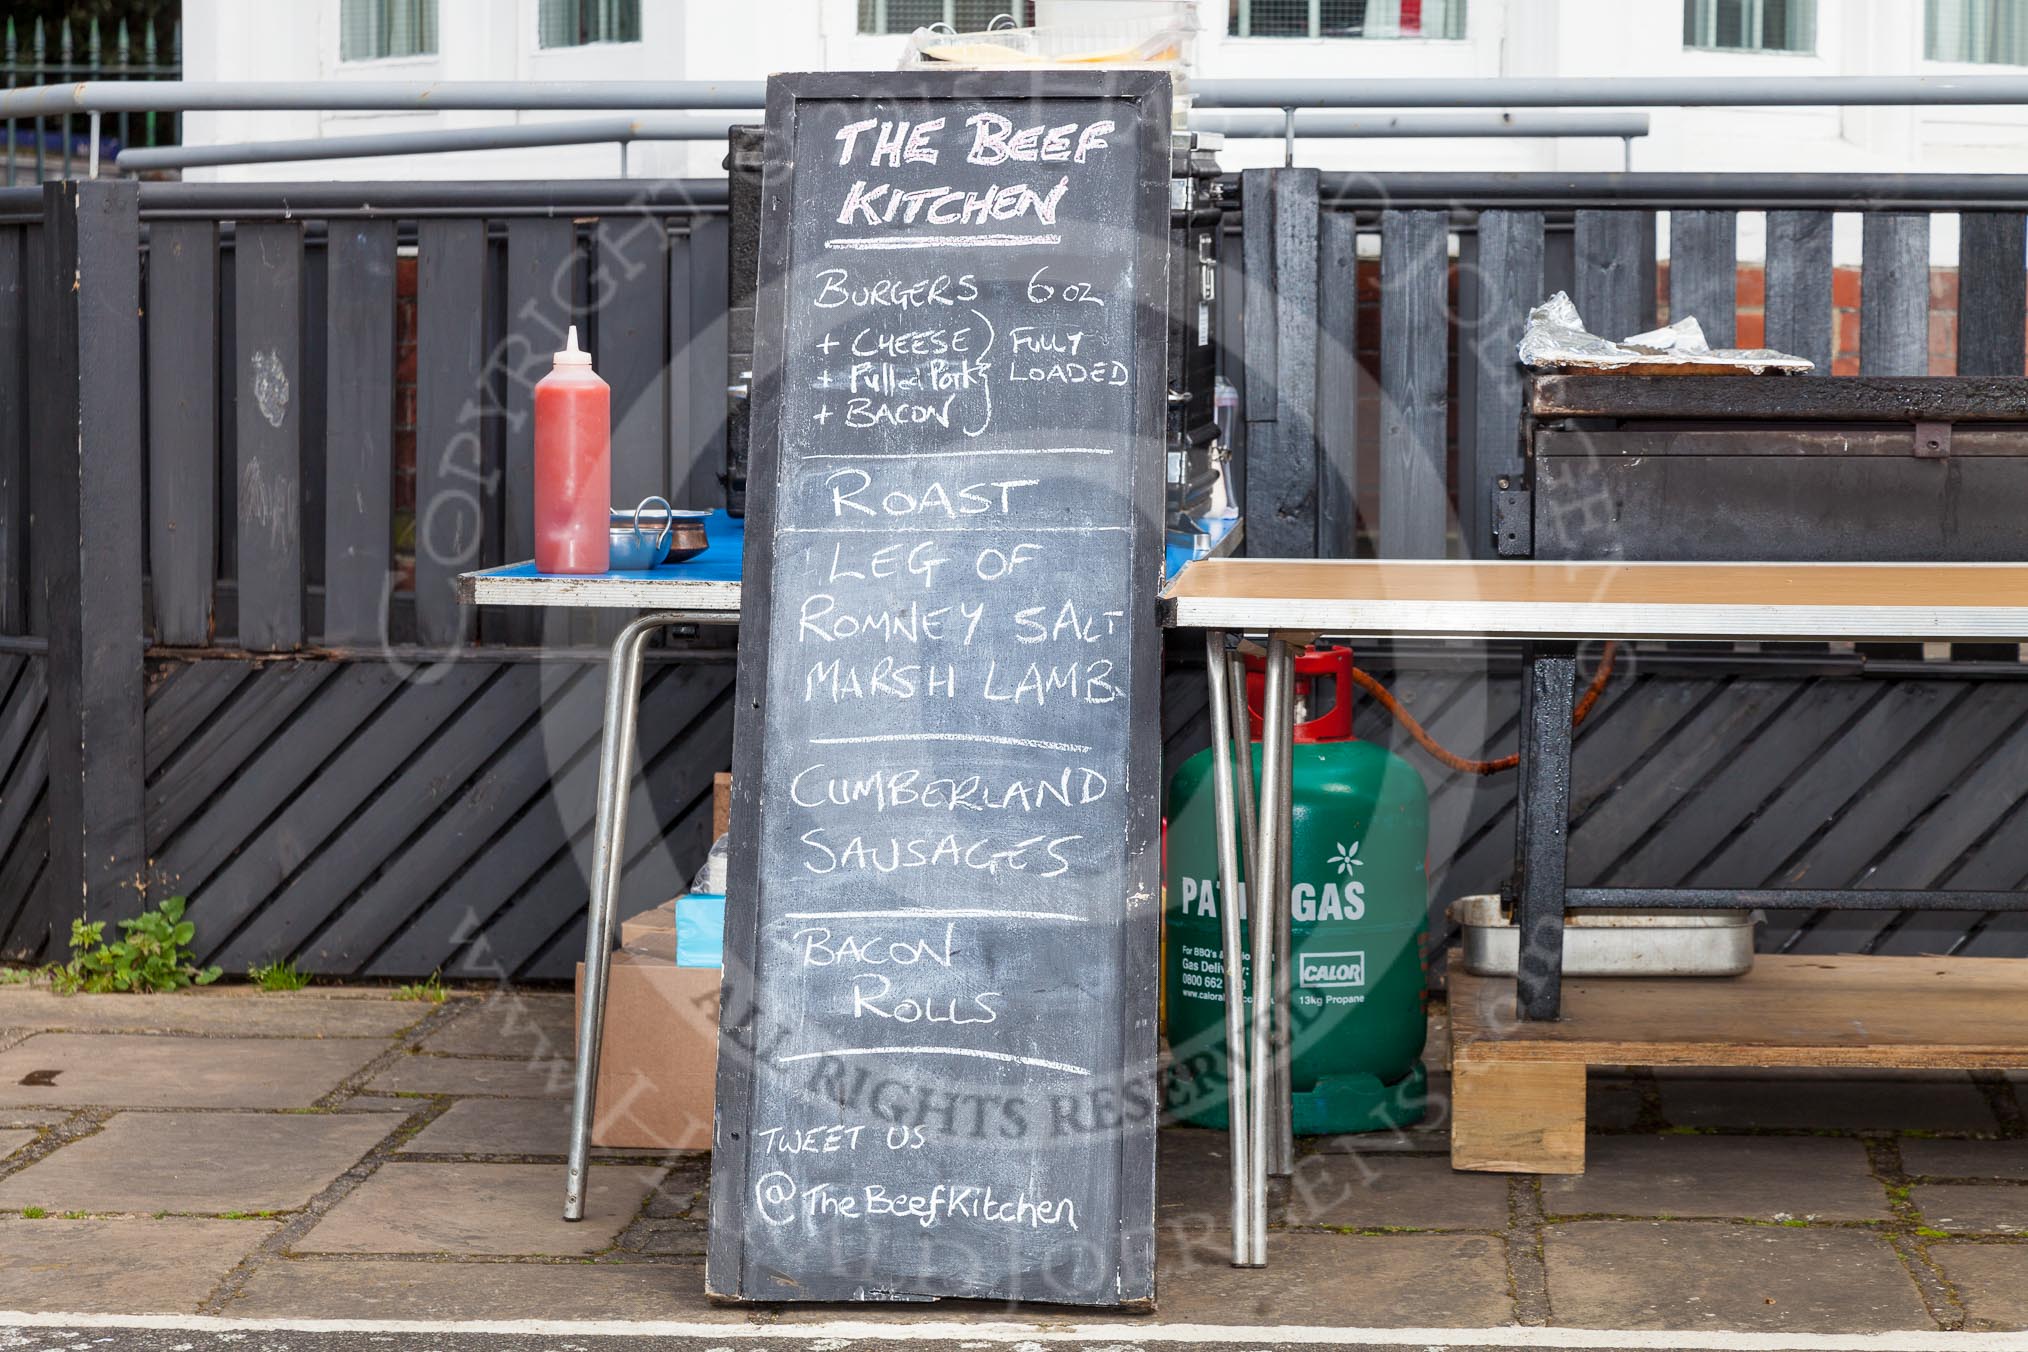 THE BEEF
KITCHEN
BURGERS 6 oz
+ CHEESE ) FULLY
+ Pulled Pork LOADED
+ BACON
ROAST
LEG OF
ROMNEY SALT
MARSH LAMB
CUMBERLAND
SAUSAGES
BACON
ROLLS
TWEET US
@TheBeefKitchen
GAS
For BBQ's &
Gas
0800 662
CALOR
13kg Propane
COPYRIGHT
ALL RIGHTS RESERVED